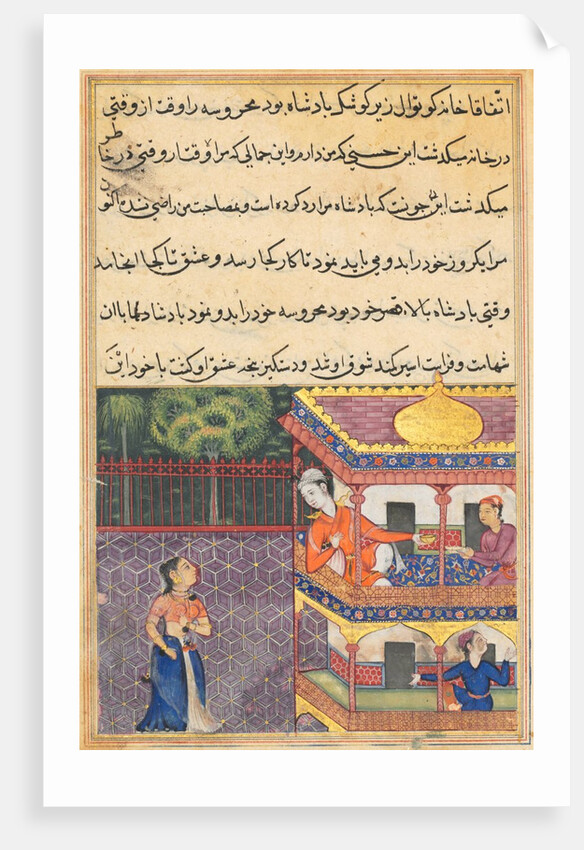 اتفاقا خانه کوتوال زیر کوشک بادشاه بود محروسه را وقت از وقتی
در خانه میگذشت این حسنی که من دارم و این جمالی که مراست وقتا روقتی در خاطر
میگذشت این چونست که بادشاه مرا رد کرده است و بمصاحبت من راضی نشده اکنون
مرا یکروز خود را بدو می باید نمود تا کار کجا رسد و عشق تا کجا انجامد
وقتی بادشاه بالاء قصر خود بود محروسه خود را بدو نمود بادشاه با آن
شهامت و فراست اسیر کمند شوق او شد و دستگیر پنجه عشق او گشت با خود این